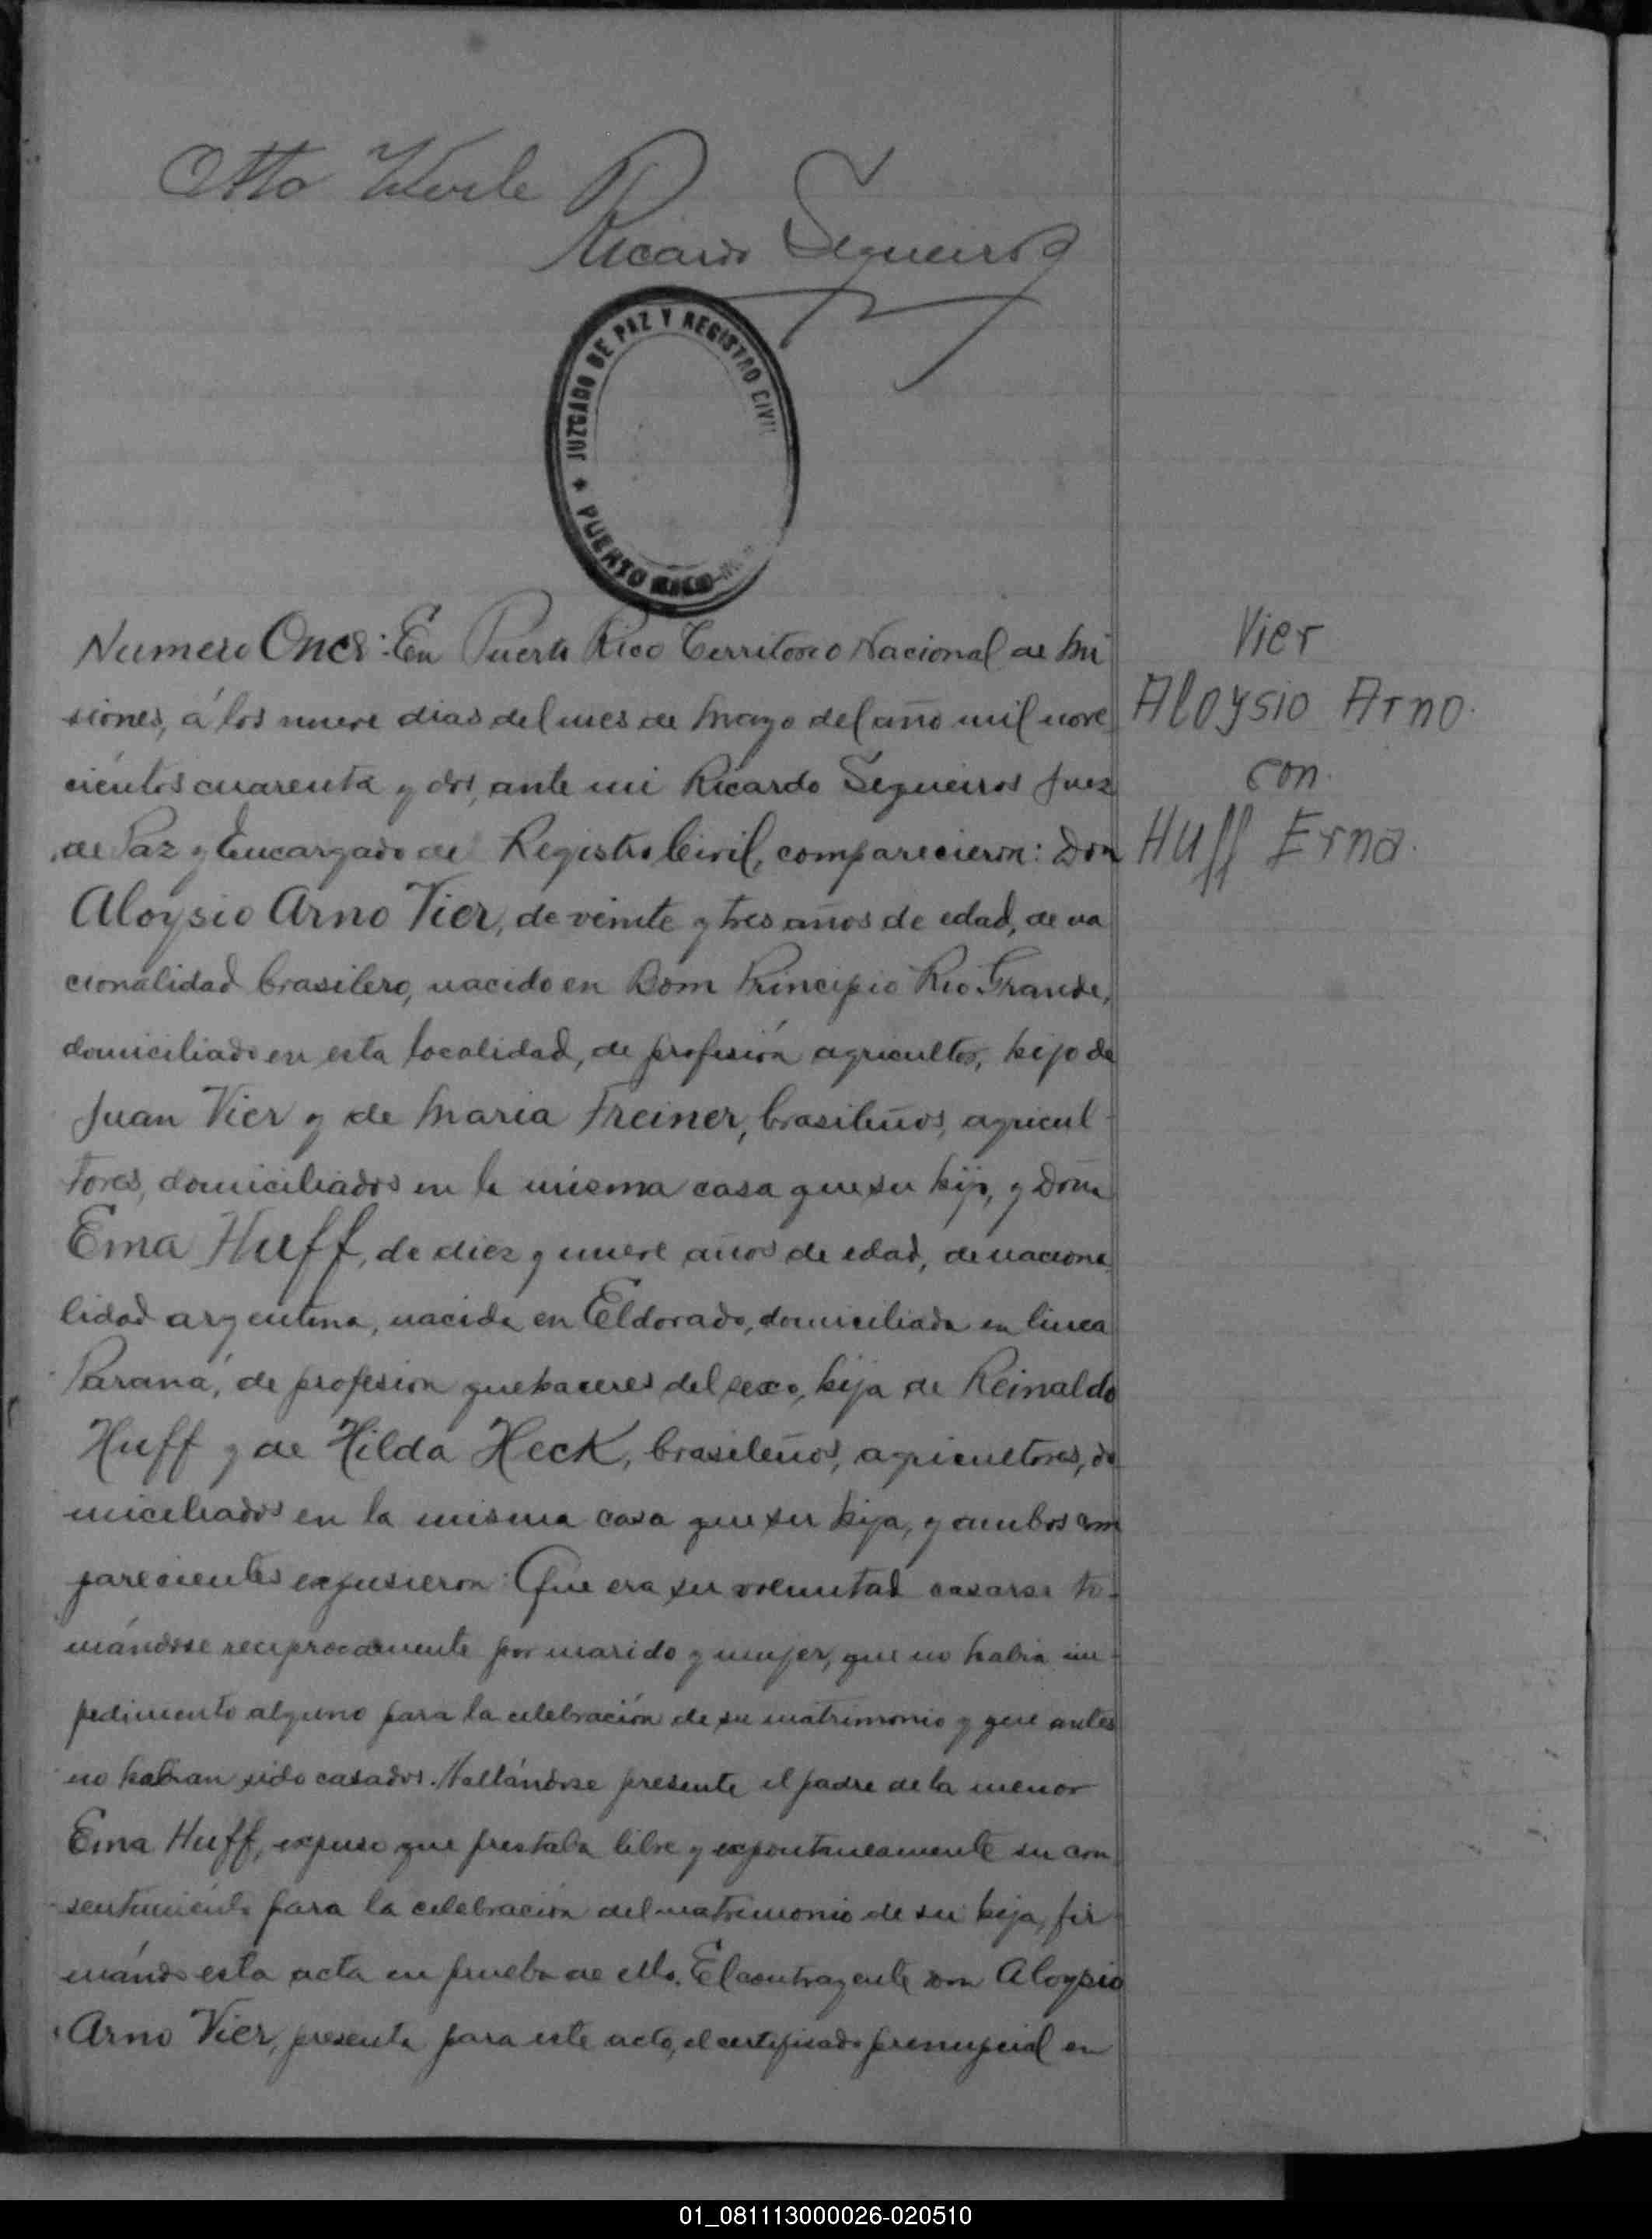 Otto Werle
Ricardo Sequeiros
JUZGADO DE PAZ Y REGISTRO CIVIL
PUERTO RICO
Numero Once: En Puerto Rico Territorio Nacional de Mi
siones, á los nueve dias del mes de Mayo del año mil nove
cientos cuarenta y dos, ante mi Ricardo Sequeiros Juez
de Paz y Encargado de Registro Civil, comparecieron: Don
Aloysio Arno Vier, de veinte y tres años de edad, de na
cionalidad brasilero, nacido en Bom Principio Rio Grande,
domiciliado en esta localidad, de profesión agricultor, hijo de
Juan Vier y de Maria Freiner, brasileños, agricul-
tores, domiciliados en la misma casa que su hijo, y Doña
Erna Huff, de diez y nueve años de edad, de naciona
lidad argentina, nacida en Eldorado, domiciliada en linea
Paraná, de profesion quehaceres del sexo, hija de Reinaldo
Huff y de Hilda Heck, brasileños, agricultores, do
miciliados en la misma casa que su hija, y ambos com
parecientes expusieron: Que era su voluntad casarse to-
mándose reciprocamente por marido y mujer, que no habia im-
pedimento alguno para la celebración de su matrimonio y que antes
no habian sido casados. Hallándose presente el padre de la menor
Erna Huff, expuso que prestaba libre y expontaneamente su con
sentimiento para la celebración del matrimonio de su hija, fir
mándo esta acta en prueba de ello. El contrayente don Aloysio
Arno Vier, presenta para este acto, el certificado prenupcial en
Vier
Aloysio Arno.
con.
Huff Erna.
01_081113000026-020510